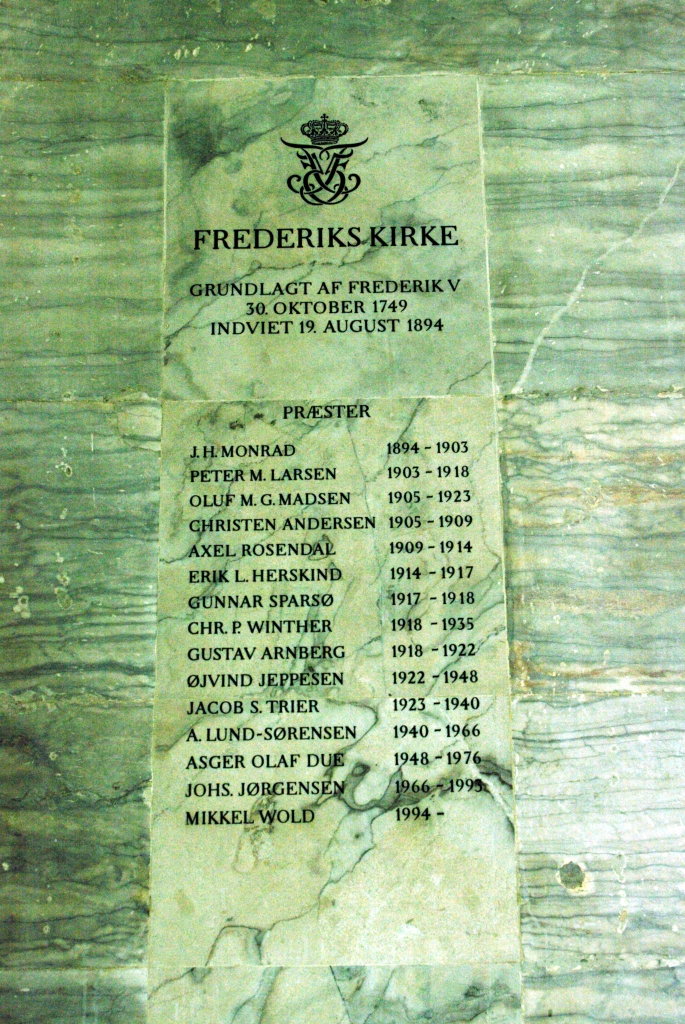 FREDERIKS KIRKE
GRUNDLAGT AF FREDERIK V
30. OKTOBER 1749
INDVIET 19. AUGUST 1894
PRÆSTER
J. H. MONRAD 1894 - 1903
PETER M. LARSEN 1903 - 1918
OLUF M. G. MADSEN 1905 - 1923
CHRISTEN ANDERSEN 1905 - 1909
AXEL ROSENDAL 1909 - 1914
ERIK L. HERSKIND 1914 - 1917
GUNNAR SPARSØ 1917 - 1918
CHR. P. WINTHER 1918 - 1935
GUSTAV ARNBERG 1918 - 1922
ØJVIND JEPPESEN 1922 - 1948
JACOB S. TRIER 1923 - 1940
A. LUND-SØRENSEN 1940 - 1966
ASGER OLAF DUE 1948 - 1976
JOHS. JØRGENSEN 1966 - 1993
MIKKEL WOLD 1994 -